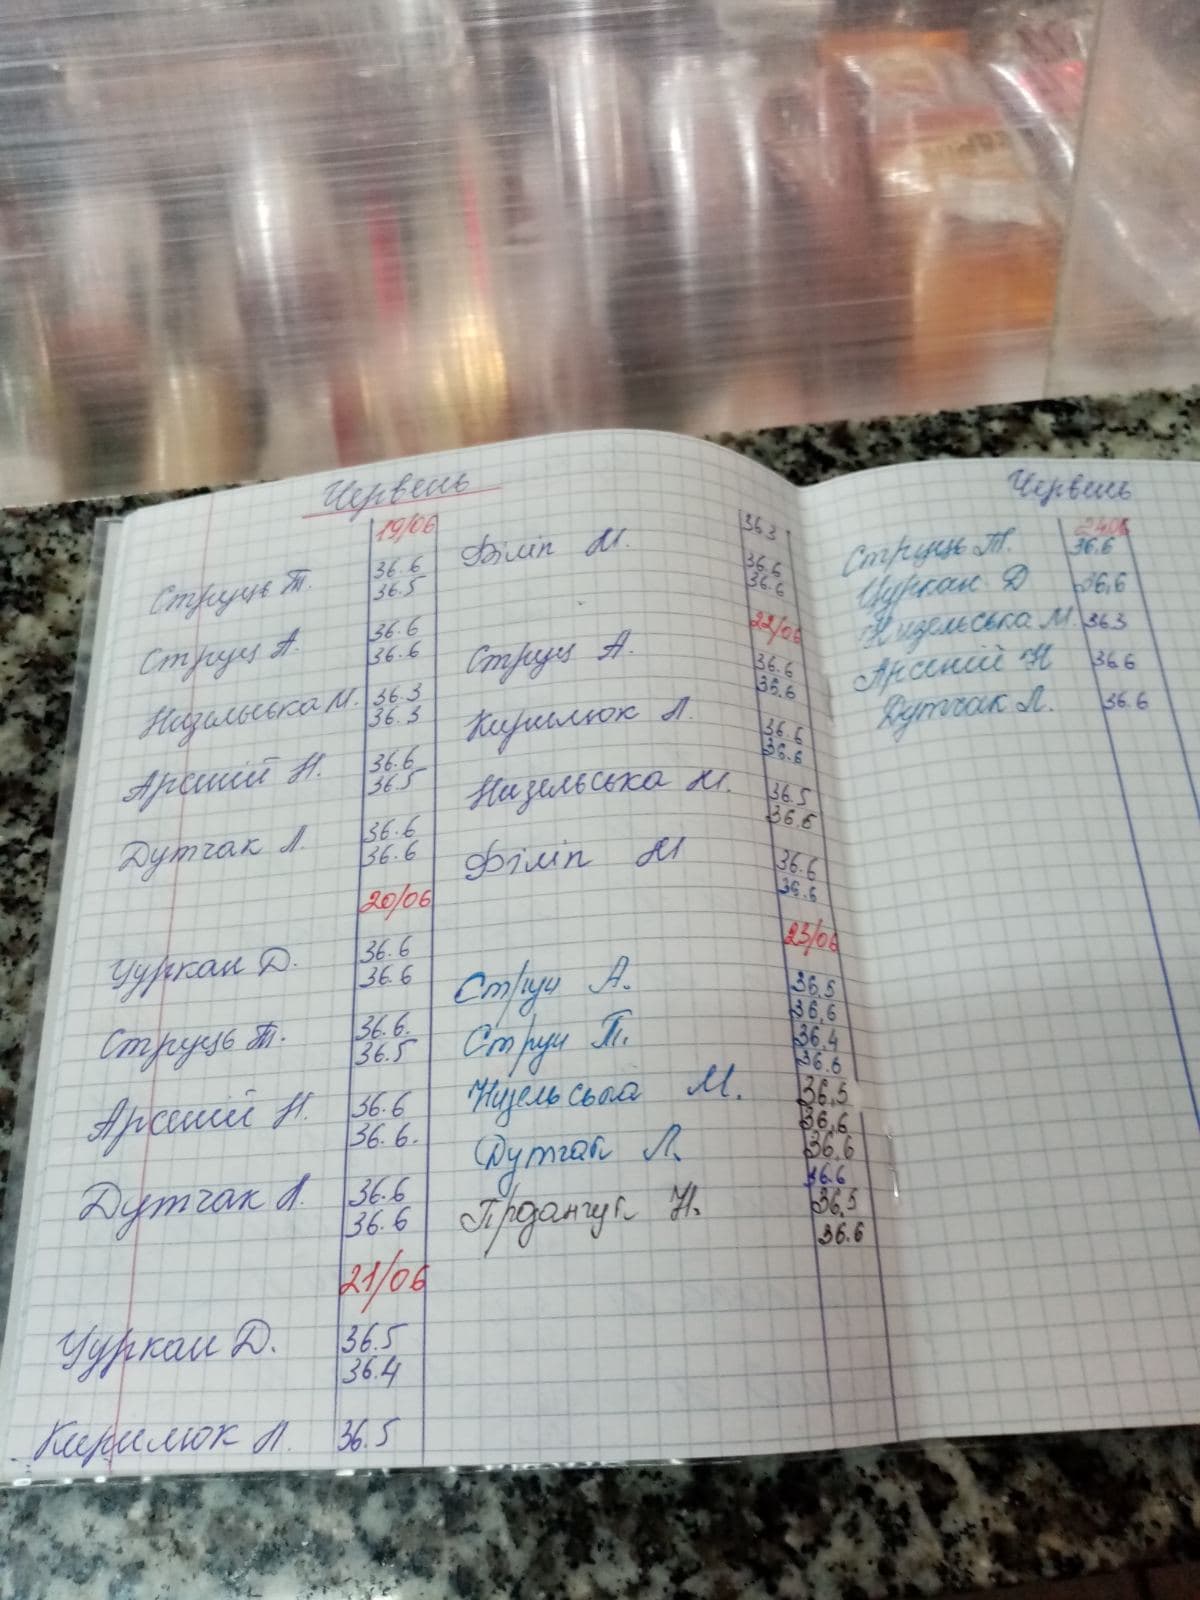 Червень
19/06
Струць Т. 36.6
36.5
Струц А. 36.6
36.6
Низельська М. 36.3
36.3
Арсеній Н. 36.6
36.5
Дутчак Л. 36.6
36.6
20/06
Цуркан Д. 36.6
36.6
Струць Т. 36.6.
36.5
Арсеній Н. 36.6
36.6.
Дутчак Л. 36.6
36.6
21/06
Цуркан Д. 36.5
36.4
Кирилюк Л. 36.5
36.3
Філіп М. 36.6
36.6
22/06
Струц А. 36.6
36.6
Кирилюк Л. 36.6
36.6
Низельська М. 36.5
36.6
Філіп М 36.6
36.6
23/06
Струц А. 36.5
36.6
Струц Т. 36.4
36.6
Низельська М. 36,5
36,6
Дутчак Л. 36.6
36.6
Н. 36,5
36.6
Червень
24.06
Струць Т. 36.6
Цуркан Д 36,6
Низельська М. 36.3
Арсеній Н 36.6
Дутчак Л. 36.6